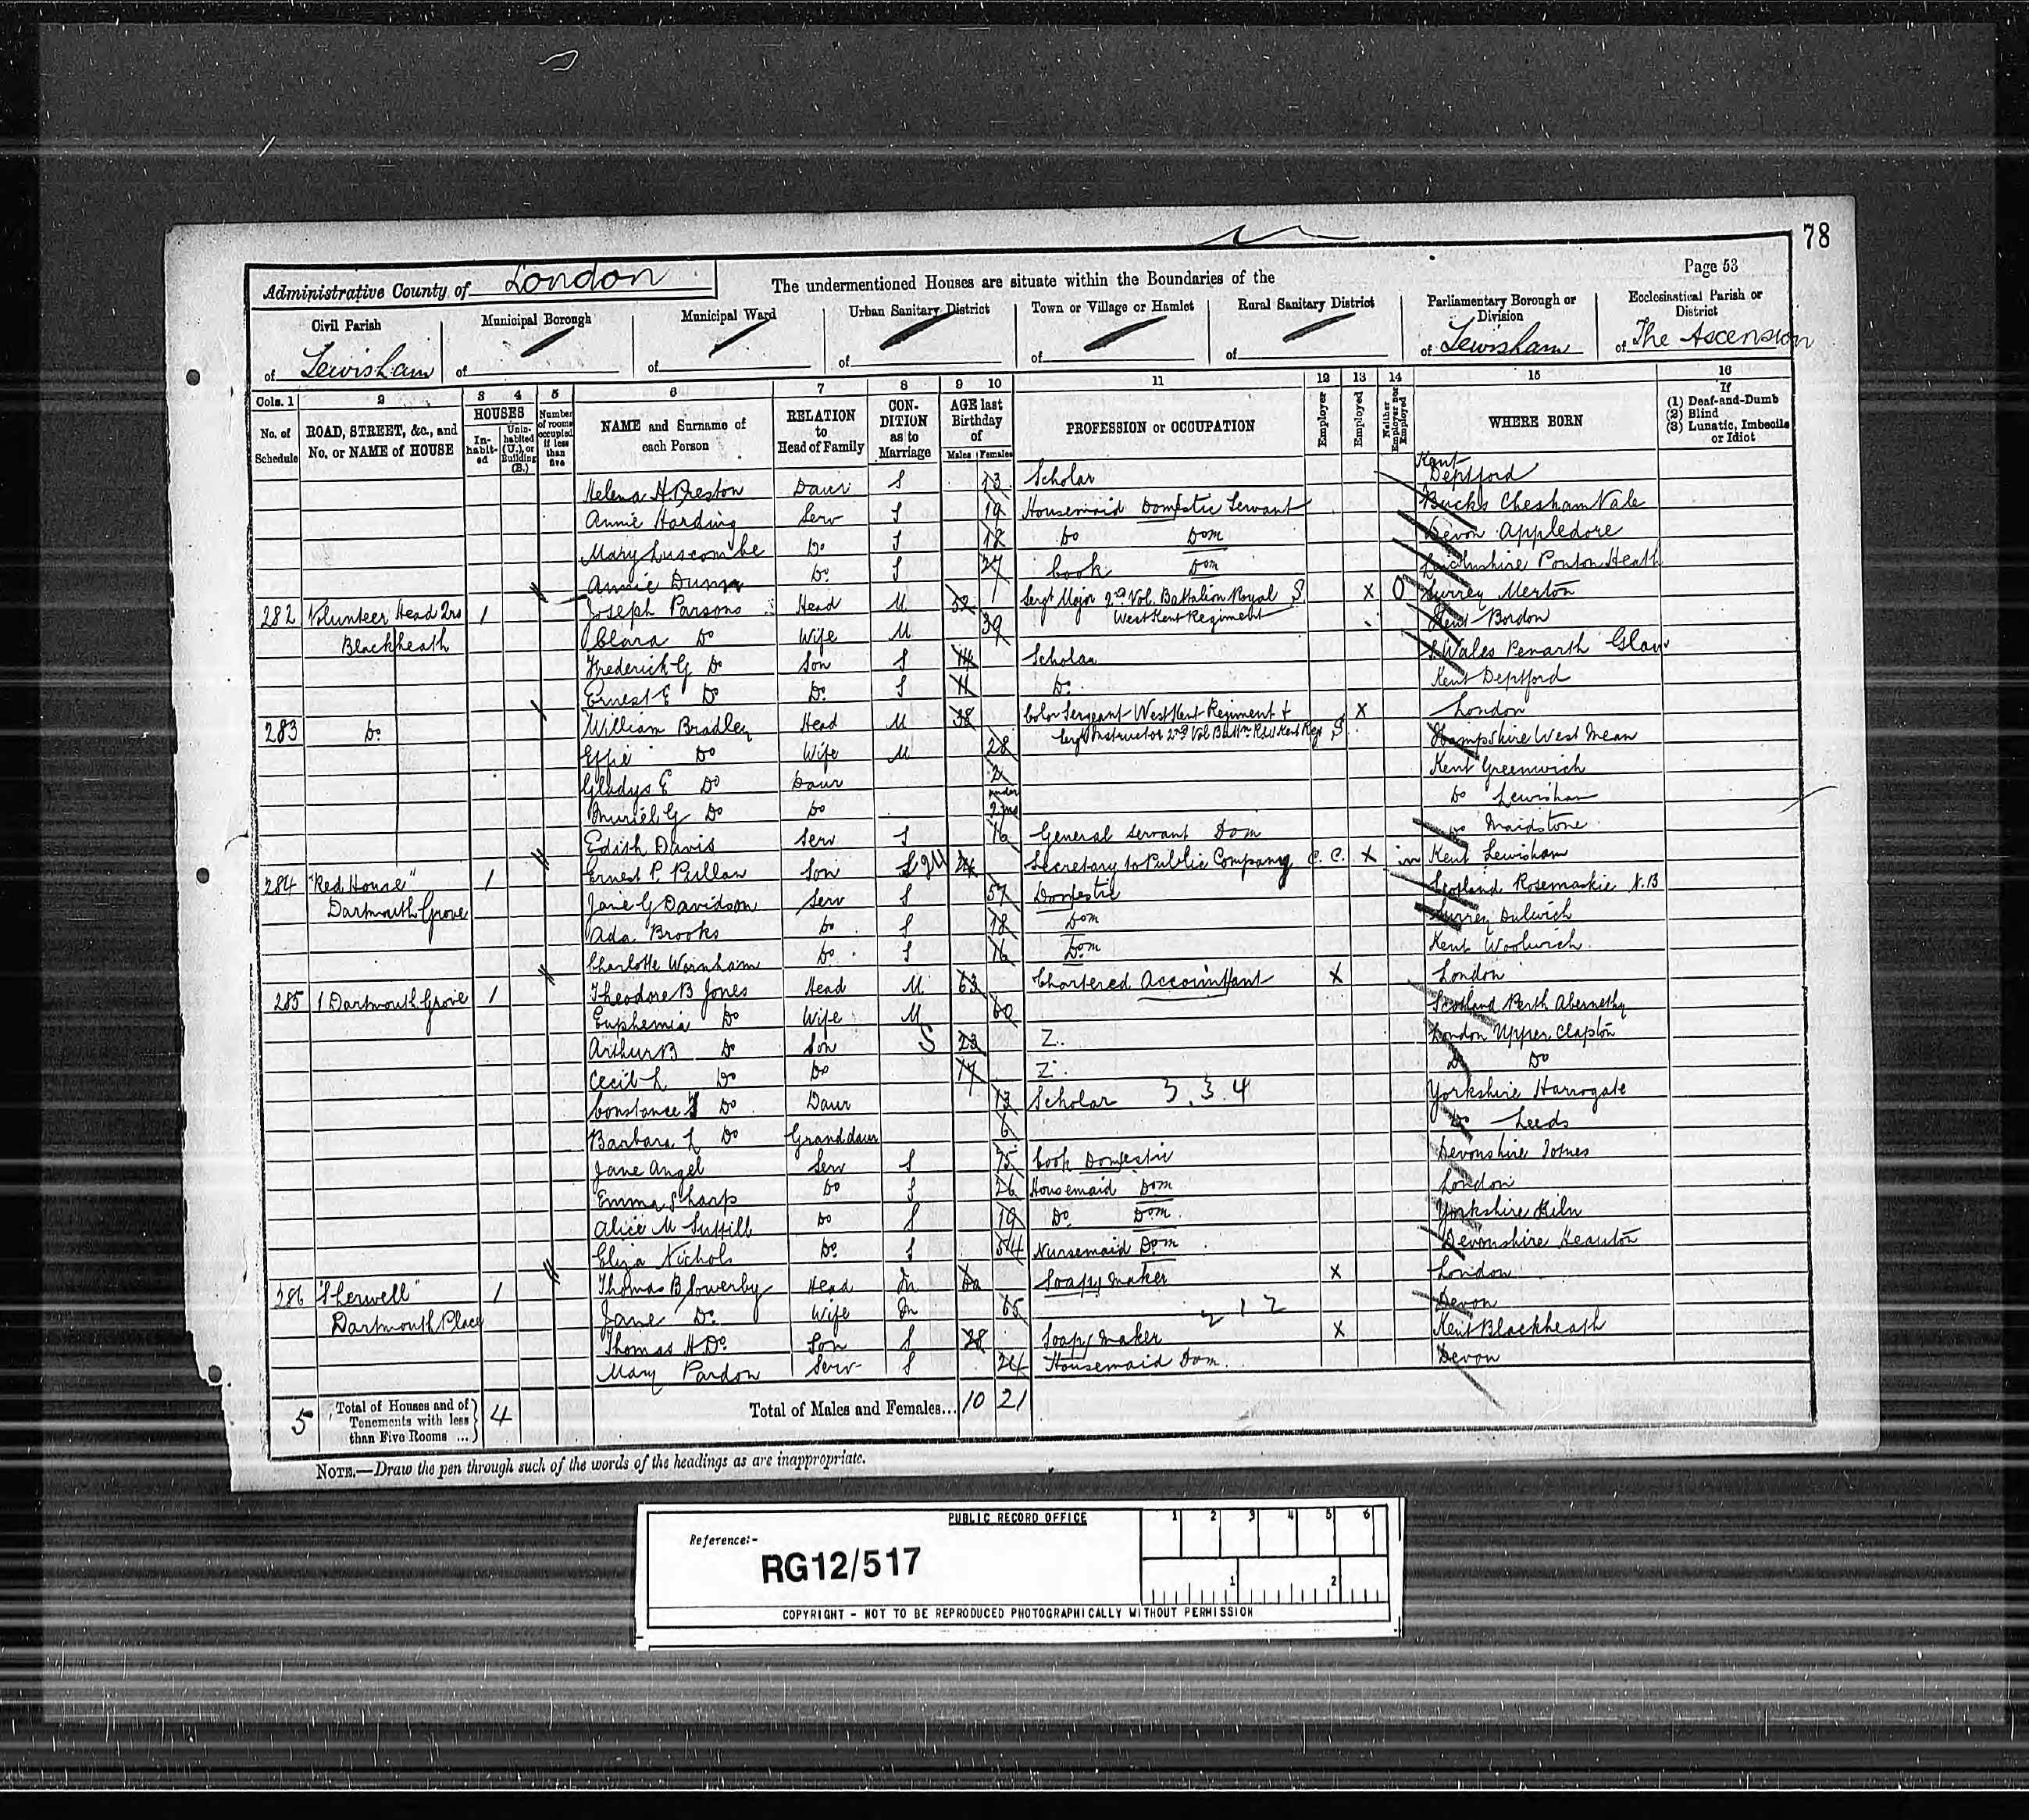 78
Page 53
Administrative County of London
The undermentioned Houses are situate within the Boundaries of the
Civil Parish of Lewisham
Municipal Borough of
Municipal Ward of
Urban Sanitary District of
Town or Village or Hamlet of
Rural Sanitary District of
Parliamentary Borough or Division of Lewisham
Ecclesiastical Parish or District of The Ascension
Cols. 1 2 3 4 5 6 7 8 9 10 11 12 13 14 15 16
No. of Schedule
ROAD, STREET, &c., and No. or NAME of HOUSE
HOUSES
In-habit-ed
Unin-habited (U.), or Building (B.)
Number of rooms occupied if less than five
NAME and Surname of each Person
RELATION to Head of Family
CON-DITION as to Marriage
AGE last Birthday of
Males Females
PROFESSION or OCCUPATION
Employer
Employed
Neither Employer nor Employed
WHERE BORN
If (1) Deaf-and-Dumb (2) Blind (3) Lunatic, Imbecile or Idiot
Helena H Preston Daur S 13 Scholar Kent Deptford
Annie Harding Serv S 19 Housemaid Domestic Servant Bucks Chesham Vale
Mary Luscombe Do S 18 Do Dom Devon Appledore
Annie Dunn Do S 27 Cook Dom Lincolnshire Ponton Heath
282 Volunteer Head Qrs 1 Joseph Parsons Head M 52 Sergt Major 2nd Vol. Battalion Royal S X O Surrey Merton
West Kent Regiment
Blackheath Clara Do Wife M 39 Kent Bordon
Frederick G Do Son S 14 Scholar S Wales Penarth Glam
Ernest E Do Do S 11 Do Kent Deptford
283 Do William Bradley Head M 38 Color Sergeant West Kent Regiment + X London
Sergt Instructor 2nd Vol Battn Rl West Kent Reg S
Effie Do Wife M 28 Hampshire West Mean
Gladys E Do Daur 2 Kent Greenwich
Muriel G Do Do under 2 mo Do Lewisham
Edith Davis Serv S 16 General Servant Dom Do Maidstone
284 "Red House" 1 Ernest P Pullan Son S 24 Secretary to Public Company C.C. X Kent Lewisham
Dartmouth Grove Jane G Davidson Serv S 57 Domestic Scotland Rosemarkie N.B
Ada Brooks Do S 18 Dom Surrey Dulwich
Charlotte Warnham Do S 16 Dom Kent Woolwich
285 1 Dartmouth Grove 1 Theodore B Jones Head M 63 Chartered Accountant X London
Euphemia Do Wife M 60 Scotland Perth Abernethy
Arthur B Do Son S 23 Z. London Upper Clapton
Cecil L Do Do 17 Z. Do Do
Constance Do Daur 13 Scholar 3.3.4 Yorkshire Harrogate
Barbara L Do Granddaur 6 Do Leeds
Jane Angel Serv S 75 Cook Domestic Devonshire Totnes
Emma Sharp Do S 26 Housemaid Dom London
Alice M Suttill Do S 19 Do Dom Yorkshire
Eliza Nichols Do S 54 Nursemaid Dom Devonshire Heanton
286 "Sherwell" 1 Thomas B Sowerby Head M Soap maker X London
Dartmouth Place Jane Do Wife M 65 2 1 2 Devon
Thomas H Do Son S 28 Soap maker X Kent Blackheath
Mary Pardon Serv S 24 Housemaid Dom. Devon
5 Total of Houses and of Tenements with less than Five Rooms ... 4
Total of Males and Females... 10 21
NOTE.—Draw the pen through such of the words of the headings as are inappropriate.
PUBLIC RECORD OFFICE
1 2 3 4 5 6
Reference:-
RG12/517
1 2
COPYRIGHT - NOT TO BE REPRODUCED PHOTOGRAPHICALLY WITHOUT PERMISSION